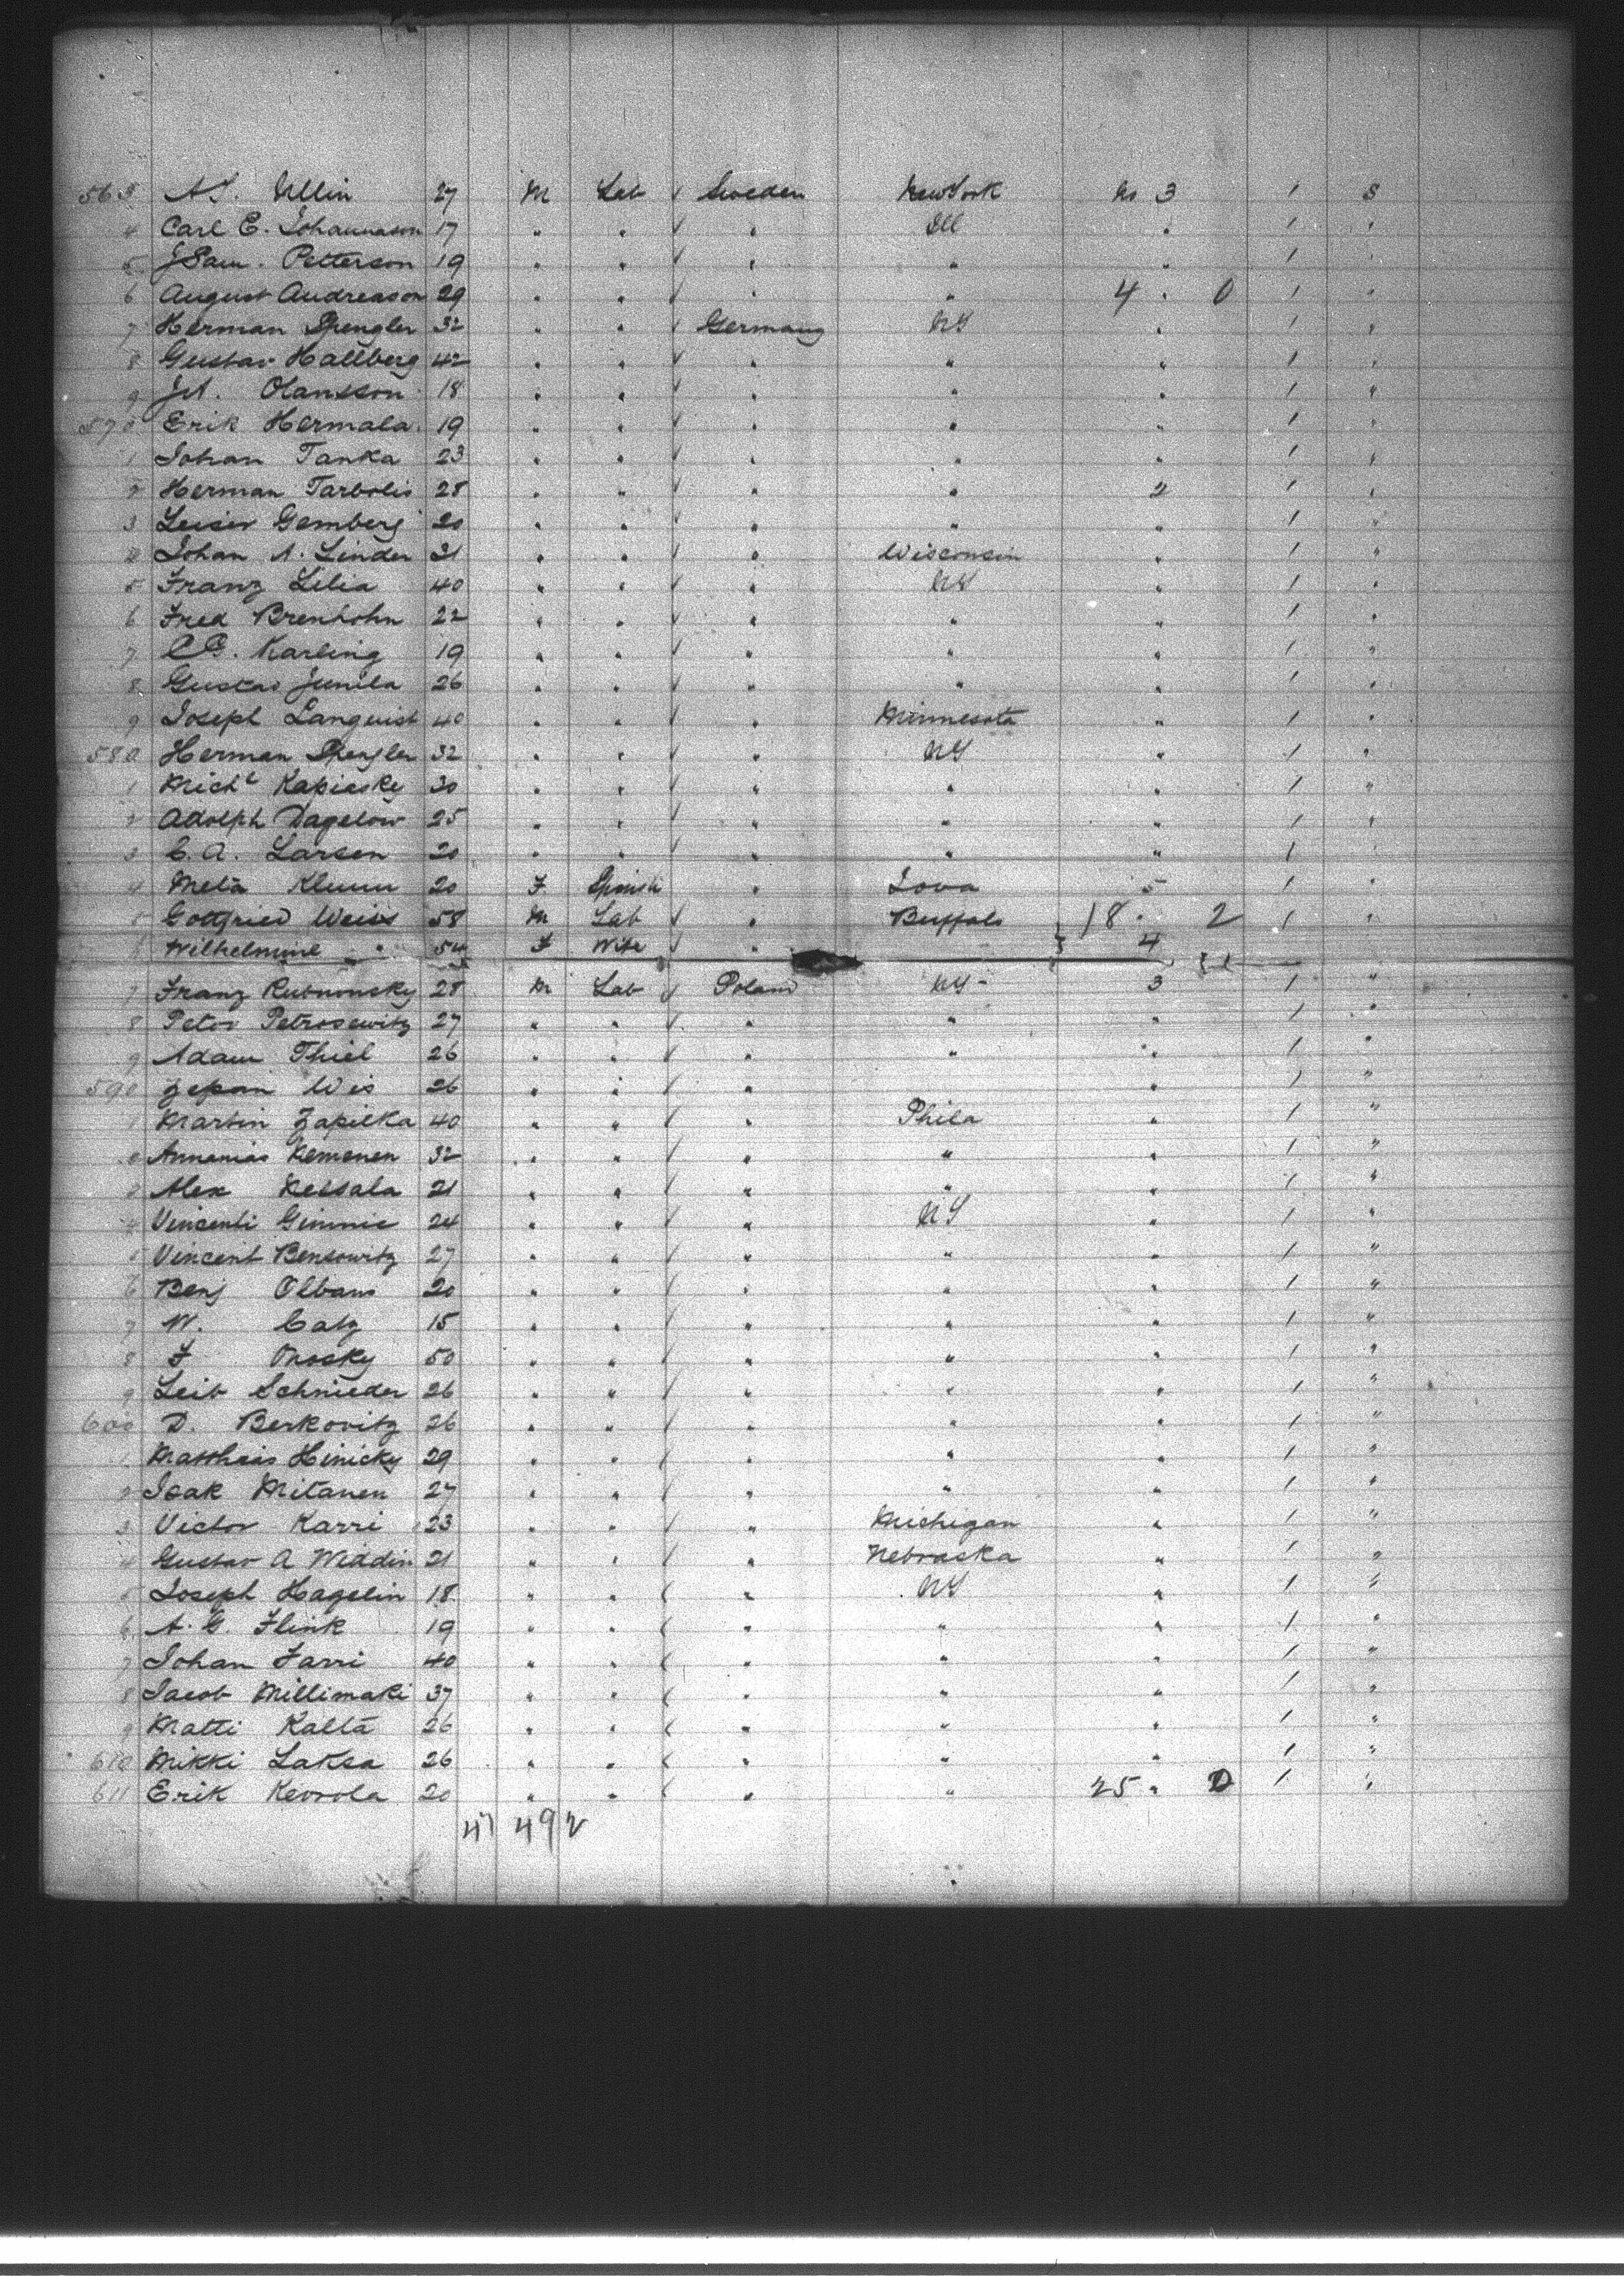 563 A. J. Ullin 27 M Lab √ Sweden New York No 3 1 S
4 Carl E. Johannason 17 " " √ " Ill " 1 "
5 J Sam. Petterson 19 " " √ " " " 1 "
6 August Andreason 29 " " √ " " 4 " 0 1 "
7 Herman Spengler 32 " " √ Germany NY " 1 "
8 Gustav Hallberg 42 " " √ " " " 1 "
9 Olansson 18 " " √ " " " 1 "
570 Erik Hermala 19 " " √ " " " 1 "
1 Johan Tanka 23 " " √ " " " 1 "
2 Herman Tarbolis 28 " " √ " " 2 1 "
3 Leiser Gemberg 20 " " √ " " " 1 "
4 Johan A. Linder 31 " " √ " Wisconsin " 1 "
5 Franz Lilia 40 " " √ " NY " 1 "
6 Fred Brenhohn 22 " " √ " " " 1 "
7 C G. Karling 19 " " √ " " " 1 "
8 Gustav Junila 26 " " √ " " " 1 "
9 Joseph Lanquist 40 " " √ " Minnesota " 1 "
580 Herman Spengler 32 " " √ " NY " 1 "
1 Michl Kapiasky 30 " " √ " " " 1 "
2 Adolph Dagelow 25 " " √ " " " 1 "
3 C. A. Larsen 20 " " √ " " " 1 "
4 Meta 20 F " Iova 5 1 "
5 Gottfried Weiss 58 M Lab √ " Buffalo } 18 " 2 1 "
6 Wilhelmine " 54 F Wife √ " 4
7 Franz Rubnonsky 28 M Lab √ Poland NY 3 1 "
8 Peter Petrosewitz 27 " " √ " " " 1 "
9 Adam Thiel 26 " " √ " " " 1 "
590 Zepan Wis 26 " " √ " " 1 "
1 Martin Zapilka 40 " " √ " Phila " 1 "
2 Annanias Kemonen 32 " " √ " " " 1 "
3 Alex Kessala 21 " " √ " " " 1 "
4 Vincenti Gimnic 24 " " √ " NY " 1 "
5 Vincent Bensowitz 27 " " √ " " " 1 "
6 Benj Olbans 20 " " √ " " " 1 "
7 W. Catz 15 " " √ " " " 1 "
8 F Onosky 50 " " √ " " " 1 "
9 Leib Schnieder 26 " " √ " " " 1 "
600 D. Berkovitz 26 " " √ " " " 1 "
1 Matthias Hinicky 29 " " √ " " " 1 "
2 Isak Mitanen 27 " " √ " " " 1 "
3 Victor Karri 23 " " √ " Michigan " 1 "
4 Gustav A Widdin 21 " " √ " Nebraska " 1 "
5 Joseph Hagelin 18 " " √ " NY " 1 "
6 A. G. Flink 19 " " √ " " " 1 "
7 Johan Farri 40 " " √ " " " 1 "
8 Jacob Millimaki 37 " " √ " " " 1 "
9 Matti Kalta 26 " " √ " " " 1 "
610 Mikki Laksa 26 " " √ " " " 1 "
611 Erik Kevrola 20 " " √ " " 25 " 0 1 "
47 49 2